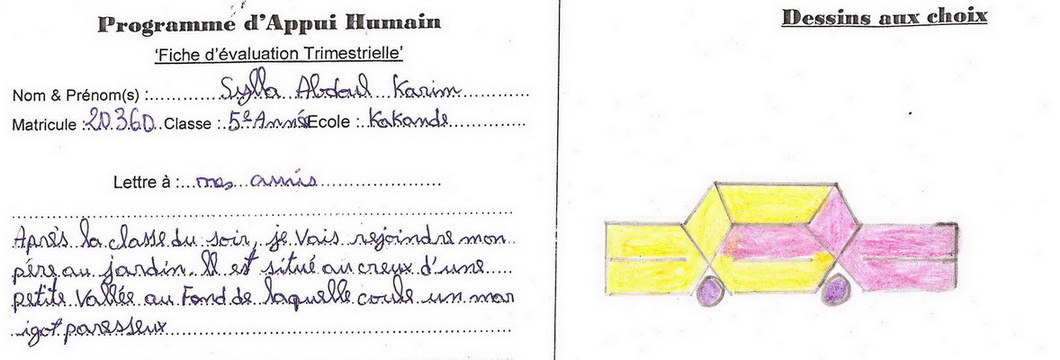 Programme d'Appui Humain
'Fiche d'évaluation Trimestrielle'
Nom & Prénom(s) :......Sylla Abdoul Karim......
Matricule :20360..Classe :.5e Année Ecole :.Kakande......
Lettre à :...mes amis......
Après la classe du soir, je Vais rejoindre mon
père au jardin. Il est situé au creux d'une
petite Vallée au Fond de laquelle coule un mar
igot paresseux
Dessins aux choix